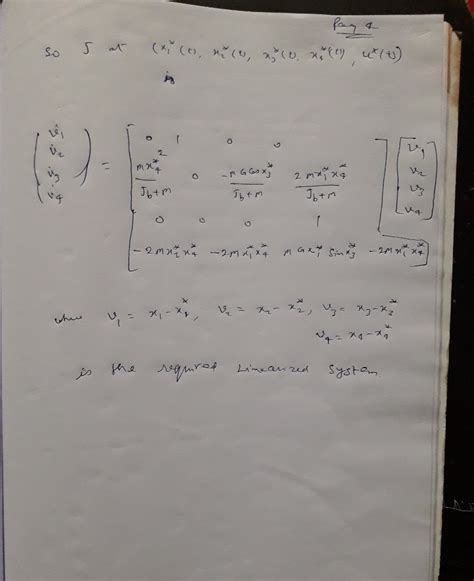 Pag 4
so J at (x₁*(t), x₂*(t), x₃*(t), x₄*(t), u*(t))
is
(v̇₁ v̇₂ v̇₃ v̇₄) = [0 1 0 0
Mx₄*²/(J_b+M) 0 -MGCosx₃*/(J_b+M) 2Mx₁*x₄*/(J_b+M)
0 0 0 1
-2Mx₂*x₄* -2Mx₁*x₄* MGx₁* Sinx₃* -2Mx₁*x₂*] [v₁ v₂ v₃ v₄]
where v₁ = x₁-x₁*, v₂ = x₂-x₂*, v₃ = x₃-x₃*
v₄ = x₄-x₄*
is the required Linearized System